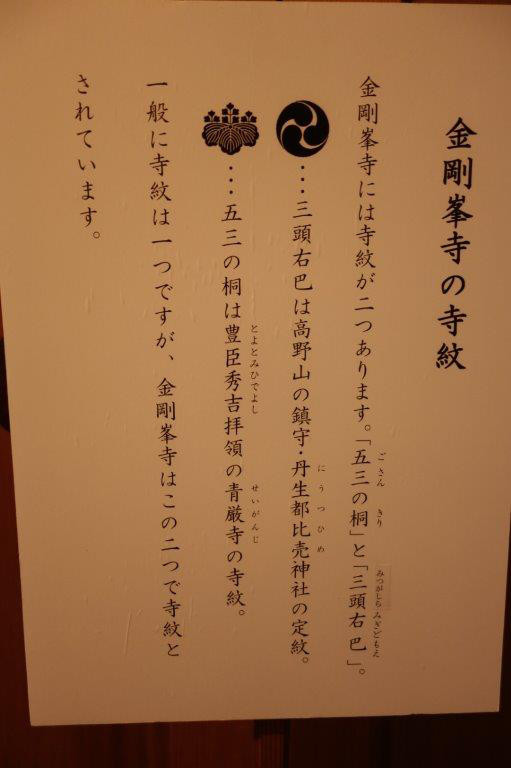 金剛峯寺の寺紋
金剛峯寺には寺紋が二つあります。「五三の桐」と「三頭右巴」。
ごさん きり みつがしら みぎどもえ
…三頭右巴は高野山の鎮守・丹生都比売神社の定紋。
にうつひめ
…五三の桐は豊臣秀吉拝領の青厳寺の寺紋。
とよとみひでよし せいがんじ
一般に寺紋は一つですが、金剛峯寺はこの二つで寺紋と
されています。